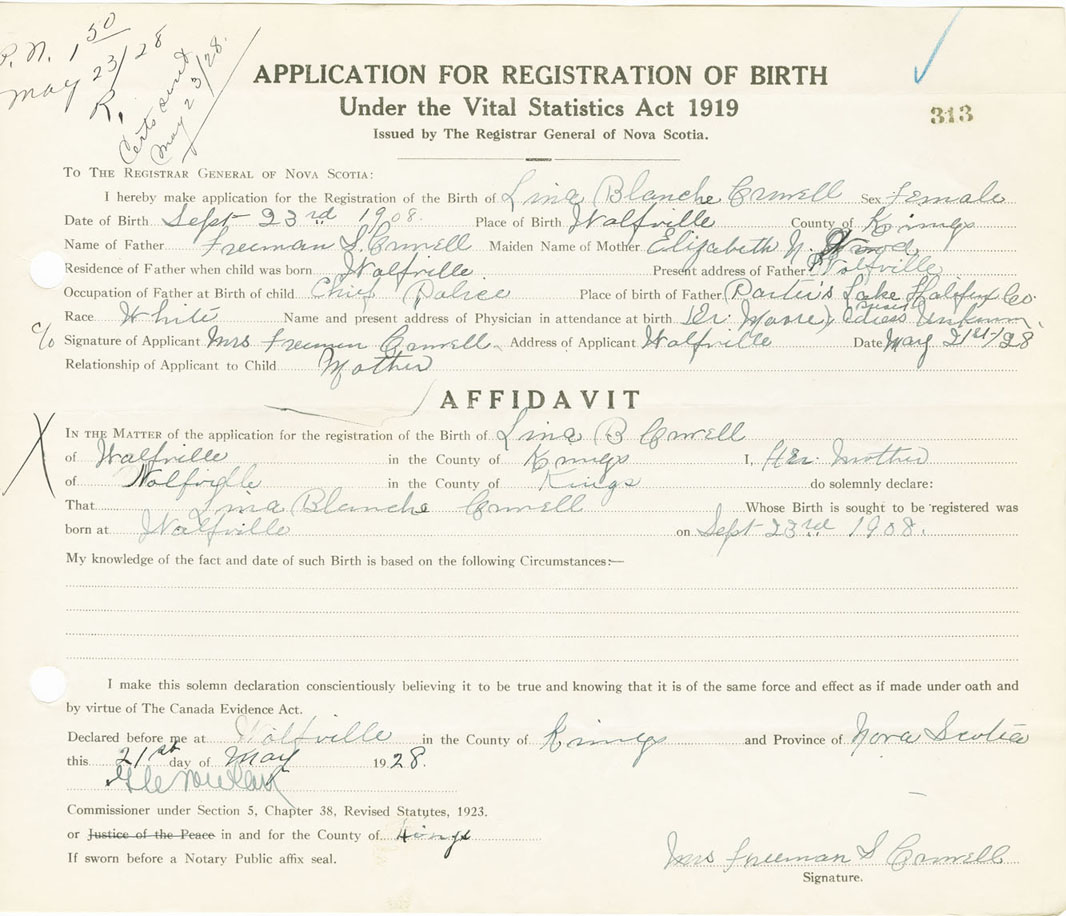 P. N. 1 50
May 23/28
R.
Certs sent
May 23/28.
APPLICATION FOR REGISTRATION OF BIRTH
Under the Vital Statistics Act 1919
313
Issued by The Registrar General of Nova Scotia.
To The Registrar General of Nova Scotia:
I hereby make application for the Registration of the Birth of Lina Blanche Crowell Sex Female
Date of Birth Sept 23rd 1908. Place of Birth Wolfville County of Kings
Name of Father Freeman S. Crowell Maiden Name of Mother Elizabeth N.
Residence of Father when child was born Wolfville. Present address of Father Wolfville
Occupation of Father at Birth of child Chief Police Place of birth of Father Porter's Lake Halifax Co.
Race White Name and present address of Physician in attendance at birth Dr. Moore,
c/o Signature of Applicant Mrs Freeman Crowell Address of Applicant Wolfville Date May 21st/28
Relationship of Applicant to Child Mother
AFFIDAVIT
X In the Matter of the application for the registration of the Birth of Lina B Crowell
of Wolfville in the County of Kings I, Her Mother
of Wolfville in the County of Kings do solemnly declare:
That Lina Blanche Crowell Whose Birth is sought to be registered was
born at Wolfville on Sept 23rd 1908.
My knowledge of the fact and date of such Birth is based on the following Circumstances:—
I make this solemn declaration conscientiously believing it to be true and knowing that it is of the same force and effect as if made under oath and
by virtue of The Canada Evidence Act.
Declared before me at Wolfville in the County of Kings and Province of Nova Scotia
this 21st day of May 1928.
Commissioner under Section 5, Chapter 38, Revised Statutes, 1923.
or Justice of the Peace in and for the County of Kings
If sworn before a Notary Public affix seal.
Mrs Freeman S Crowell
Signature.